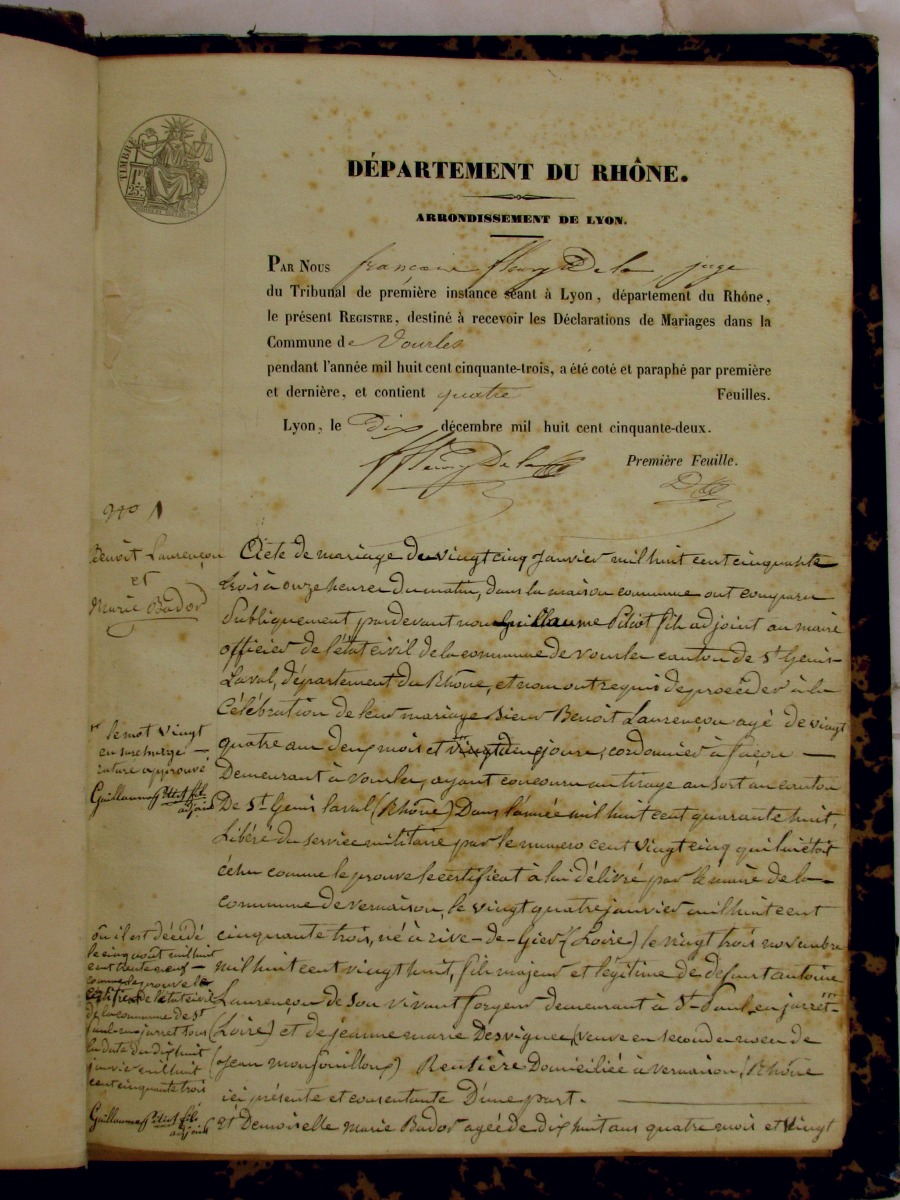 TIMBRE
1F.
25c
DÉPARTEMENT DU RHÔNE.
ARRONDISSEMENT DE LYON.
PAR NOUS françois fleury Dela juge
du Tribunal de première instance séant à Lyon, département du Rhône,
le présent REGISTRE, destiné à recevoir les Déclarations de Mariages dans la
Commune de Vourles
pendant l'année mil huit cent cinquante-trois, a été coté et paraphé par première
et dernière, et contient quatre Feuilles.
Lyon, le Dix décembre mil huit cent cinquante-deux.
Première Feuille.
No 1
Benoit Laurençon
et
Marie Bador
Acte de mariage du vingt cinq janvier mil huit cent cinquante
trois à onze heures du matin, dans la maison commune ont comparu
Publiquement pardevant nous Guillaume Pitiot fils adjoint au maire
officier de l'état civil de la commune de vourles canton de St Genis-
Laval, département du Rhône, et nous ont requis de procéder à la
Célébration de leur mariage Sieur Benoit Laurençon agé de vingt
quatre ans deux mois et vingt deux jours, cordonnier à façon —
Demeurant à Vourles, ayant concouru au tirage au sort au canton
De St Genis laval (Rhône) Dans l'année mil huit cent quarante huit,
Libéré du service militaire par le numero cent vingt cinq qui lui étoit
échu comme le prouve le certificat à lui délivré par le maire de la —
commune de vernaison, le vingt quatre janvier mil huit cent
cinquante trois, né à rive-de-Gier (Loire) le vingt trois novembre
mil huit cent vingt huit, fils majeur et légitime de defunt antoine
Laurençon de son vivant forgeur demeurant à St-Paul-en-jarrêt-
(Loire) et de jeanne marie Desvignes, (veuve en second noces de
(jean monfouilloux) Rentière Domiciliée à vernaison, (Rhône
ici présente et consentante D'une part. —
et Demoiselle Marie Bador agée de dix huit ans quatre mois et vingt
le mot vingt
en surcharge —
rature approuvé
Guillaume Pitiot fils
adjoint
où il est décédé
le cinq août mil huit
cent trente neuf —
comme le prouve le
certificat de l'état civil
de la commune de St
Paul-en-jarret sous
la date du dix huit
janvier mil huit
cent cinquante trois
Guillaume Pitiot fils
adjoint